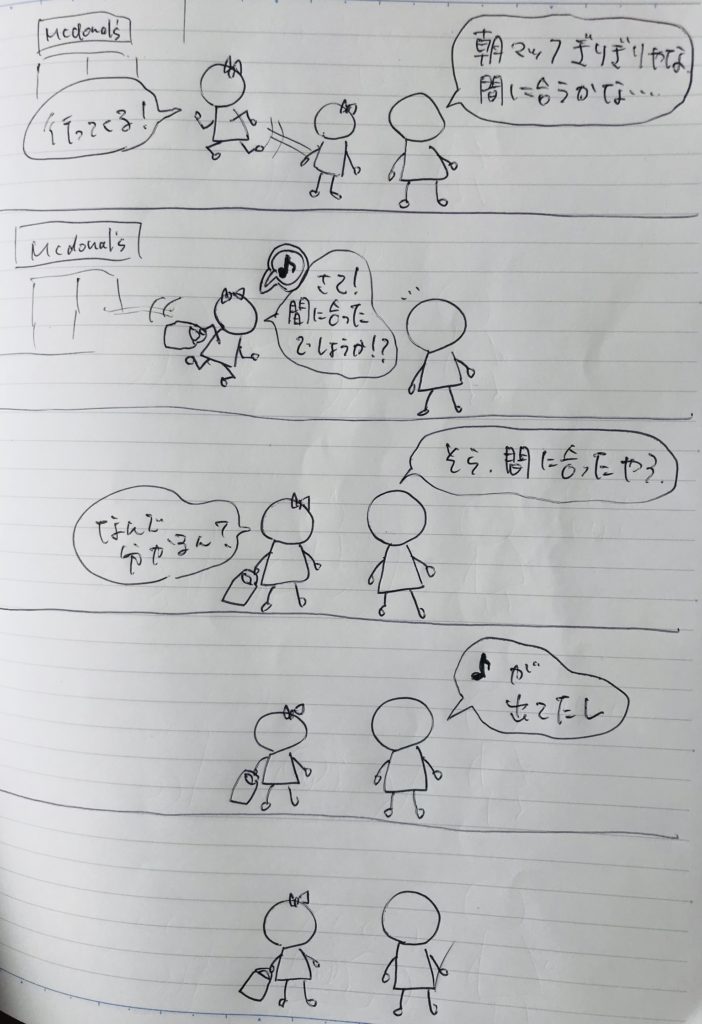 Mcdonal's
朝マックぎりぎりやな
間に合うかな….
行ってくる!
Mcdonal's
♪
さて!
間に合った
でしょうか!?
…
そら、間に合ったやろ.
なんで
分かるん?
♪が
出てたし